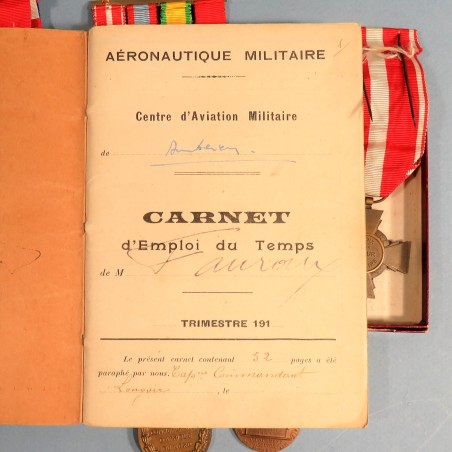 AÉRONAUTIQUE MILITAIRE
Centre d'Aviation Militaire
de
CARNET
d'Emploi du Temps
de M
TRIMESTRE 191
Le présent carnet contenant 52 pages a été
paraphé par nous, Commandant
le